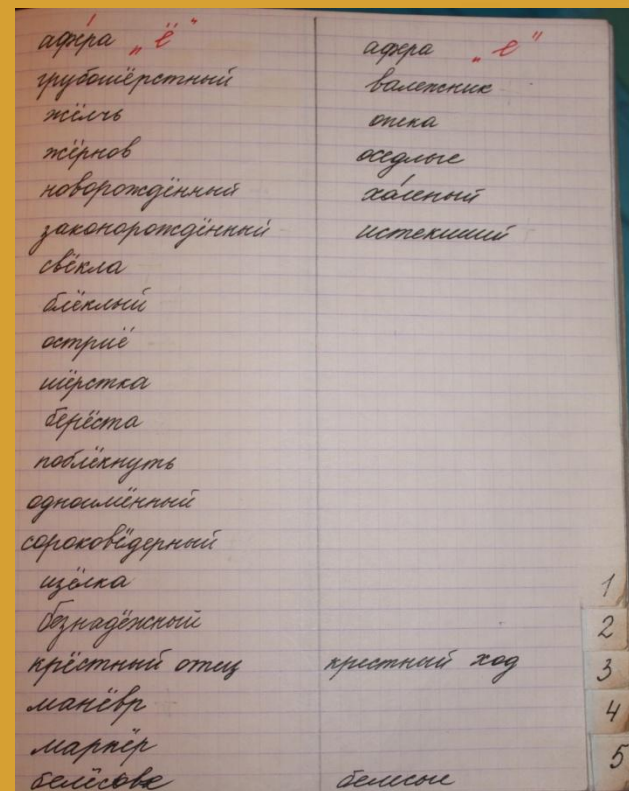 афера „ё"
грубошёрстный
жёлчь
жёрнов
новорождённый
законорождённый
свёкла
блёклый
остриё
шёрстка
берёста
поблёкнуть
одноимённый
сороковёдерный
щёлка
безнадёжный
крёстный отец
манёвр
маркёр
афера „е"
валежник
опека
оседлые
хáленый
истекший
крестный ход
белесые
1
2
3
4
5